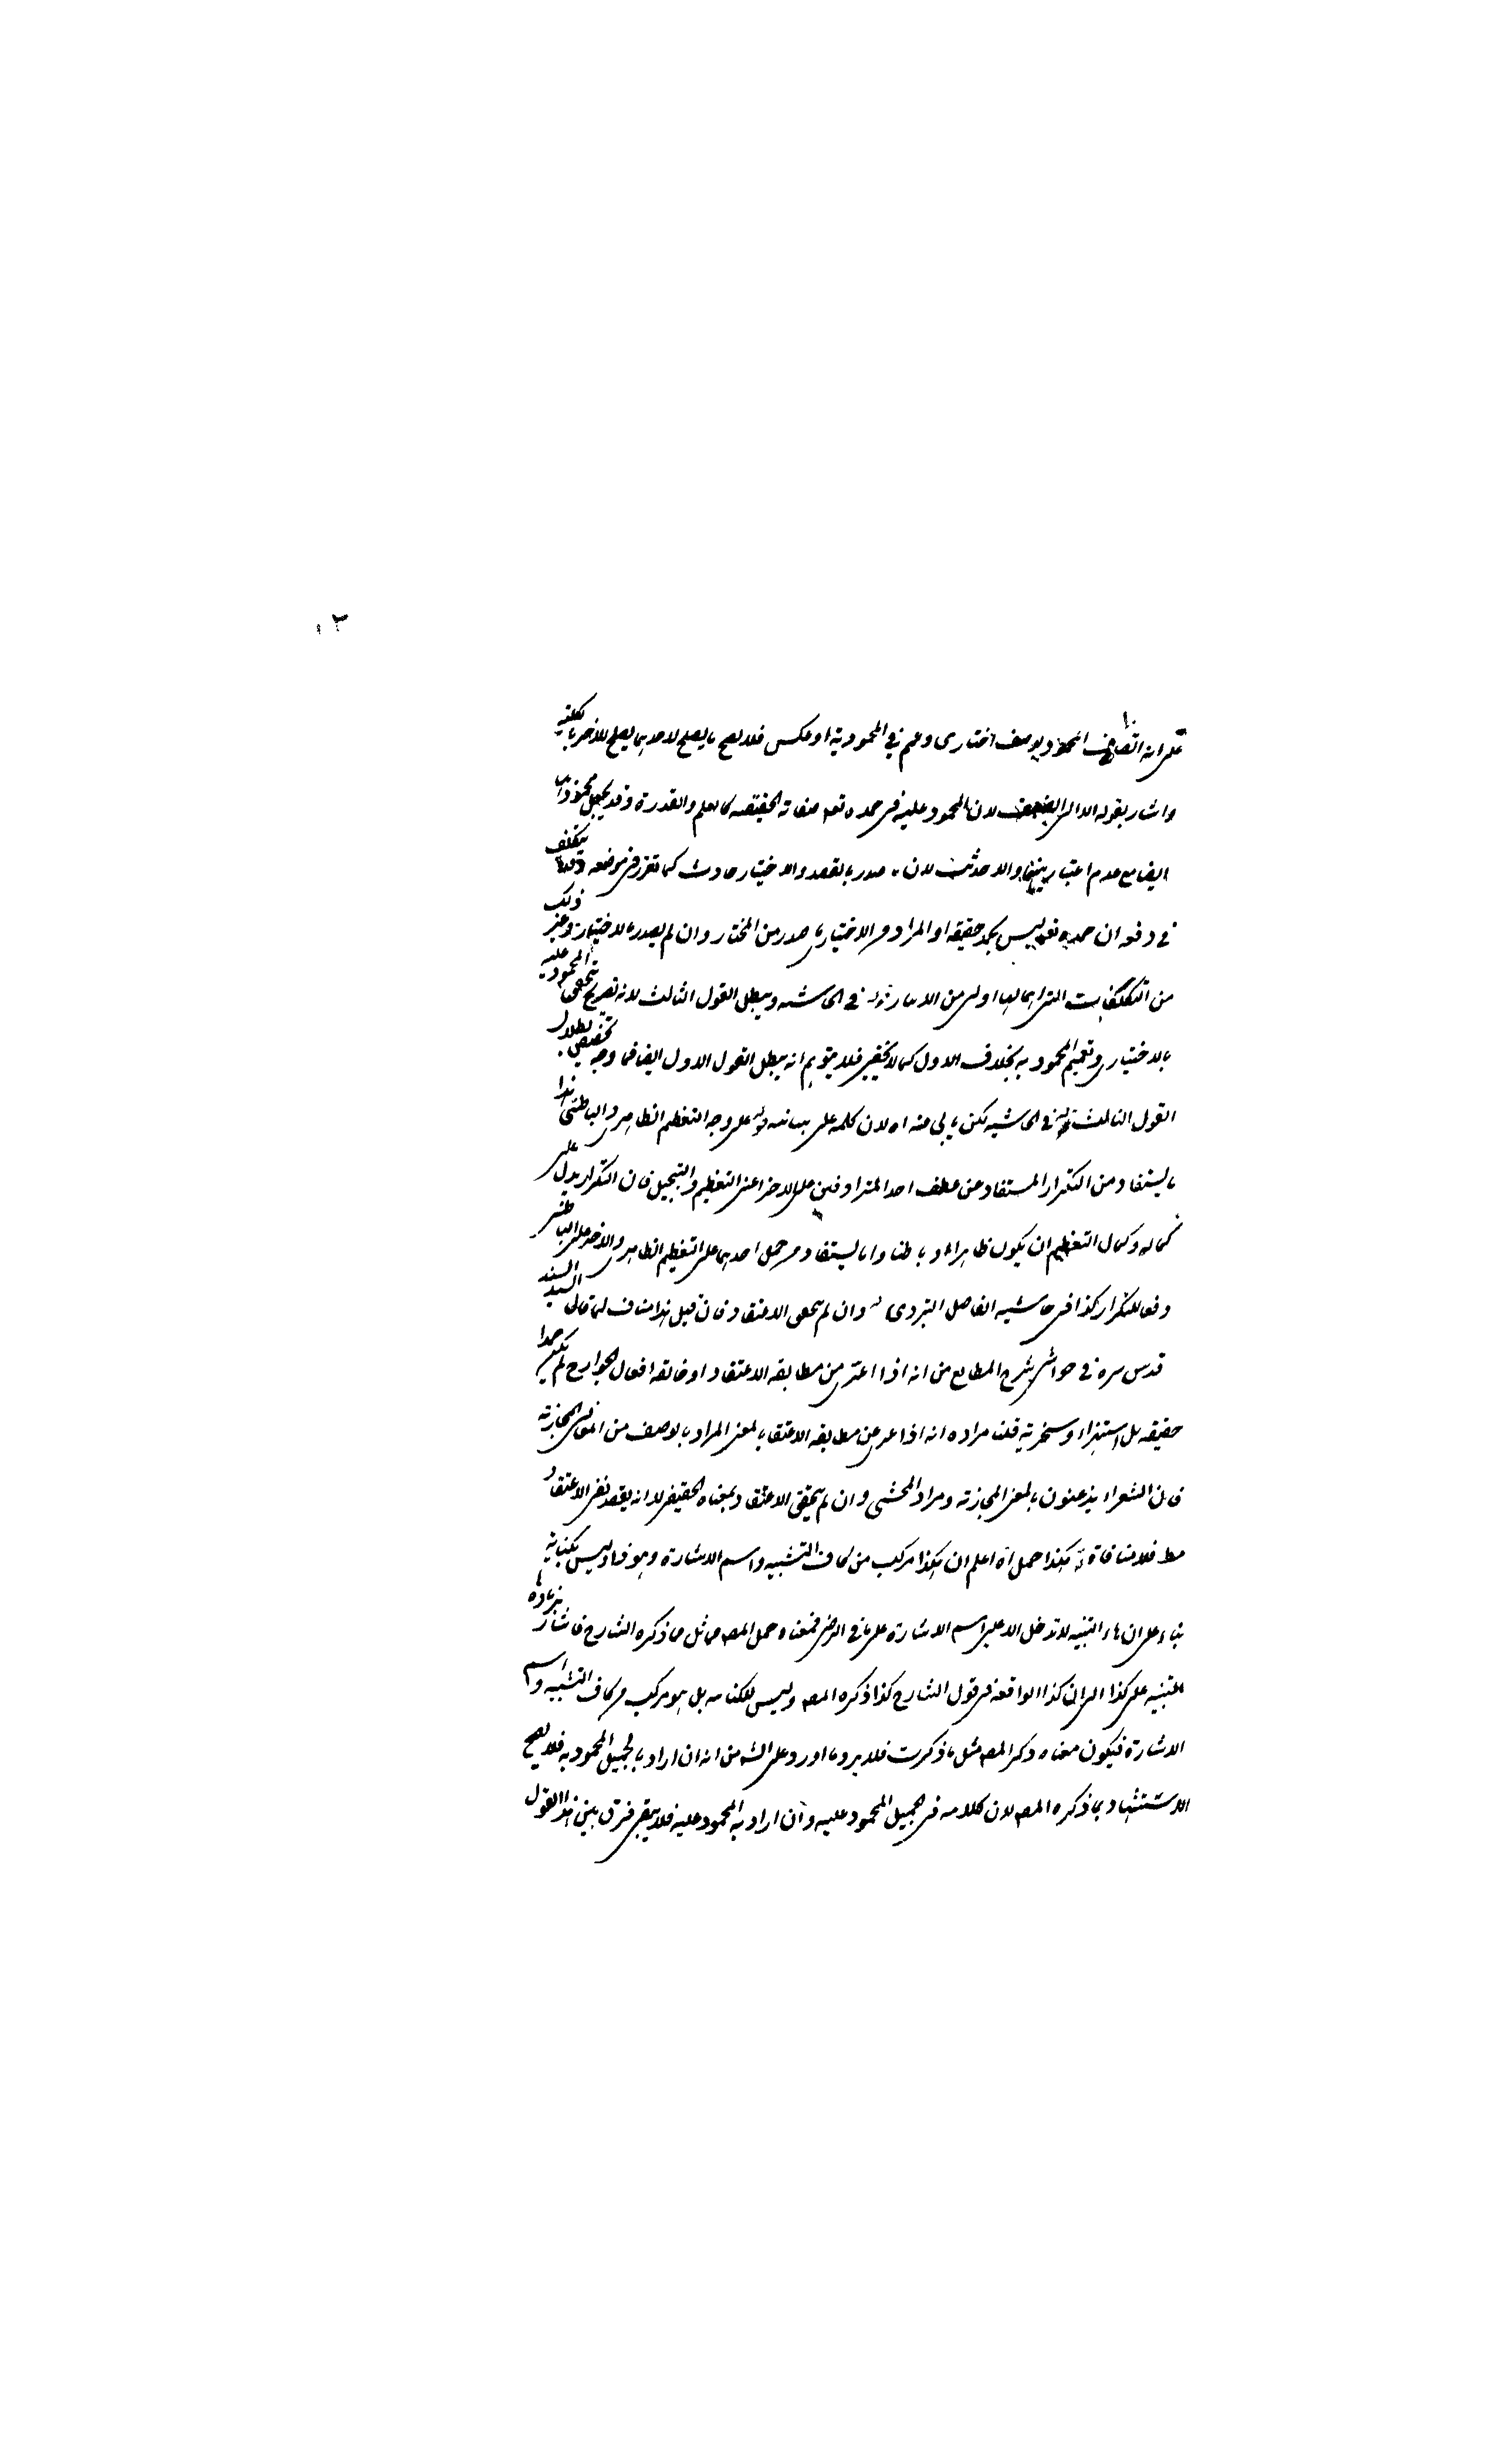 ٣
على انه اتصاف المحمود بوصف اختيارى وعمم في المحمود به او عكس فلا يصح ما يصلح لاحدهما يصلح للاخر
واشار بقوله الاولى الى لان المحمود عليه في حمده تعه صفاته الحقيقيه كالعلم والقدرة وقد يجعل محمودا
ايضا مع عدم اعتبار والا حدثت لان ما صدر بالقصد والاختيار حادث كما تقرر في موضعه وقد يتكلف
في دفعه ان حمده تعه ليس بحمد حقيقه او المراد من الاختيارى ما صدر من المختار وان لم يصدر بالاختيار وغير ذلك
من التكلفات اولى من في الحاشيه ويبطل القول الثالث لانه تصريح المحمود عليه
بالاختيارى وتعميم المحمود به بخلاف الاول كما لا يخفى فلا يتوهم انه يبطل القول الاول ايضا فما وجه تخصيص بطلان
القول الثالث قوله في الحاشيه لكن يابى عنه اه لان كلمة على بيانيه قوله على وجه التعظيم الظاهرى والباطنى هذا
ما يستفاد من التكرار المستفاد عن عطف احد المترادفين على الاخر اعنى التعظيم والتبجيل فان التكرار يدل على
كماله وكمال التعظيم ان يكون ظاهرا و باطنا واما يستفاد من حمل احدهما على التعظيم الظاهرى والاخر على الباطنى
دفعا للتكرار كذا في حاشيه الفاضل اليزدى قوله وان لم يتحقق الاعتقاد فان قيل هذا مناف لما قال السيد السند
قدس سره في حواشى شرح المطالع من انه اذا عرى من مطابقه الاعتقاد او خالفه افعال الجوارح لم يكن حمدا
حقيقه بل استهزاء وسخرية قلنا مراده انه اذا عرى عن مطابقه الاعتقاد بالمعنى المراد بالوصف من المعانى المجازية
فان الشعراء يذعنون بالمعنى المجازية ومراد المحشى وان لم يتحقق الاعتقاد بمعناه الحقيقى لا انه يقصد نفى الاعتقاد
مط فلا منافاة قوله هكذا حمل اه اعلم ان هكذا مركب من كاف التشبيه واسم الاشارة وهو ذا وليس بكناية
بناء على ان هاء التنبيه لا تدخل الا على اسم الاشارة على ما في الرضى فمعناه حمل المصه مماثل ما ذكره الشارح فاشار بزيادة ها
التنبيه على كذا الى ان كذا الواقعه في قول الشارح كذا ذكره المصه وليس للكنايه بل هو مركب من كاف التشبيه واسم
الاشارة فيكون معناه ذكر المصه مثل ما ذكرت فلا يرد ما اورد على الشه من انه ان اراد بالجميل المحمود به فلا يصح
الاستشهاد بما ذكره المصه لان كلامه في الجميل المحمود عليه وان اراد به المحمود عليه فلا يبقى فرق بين هذا القول